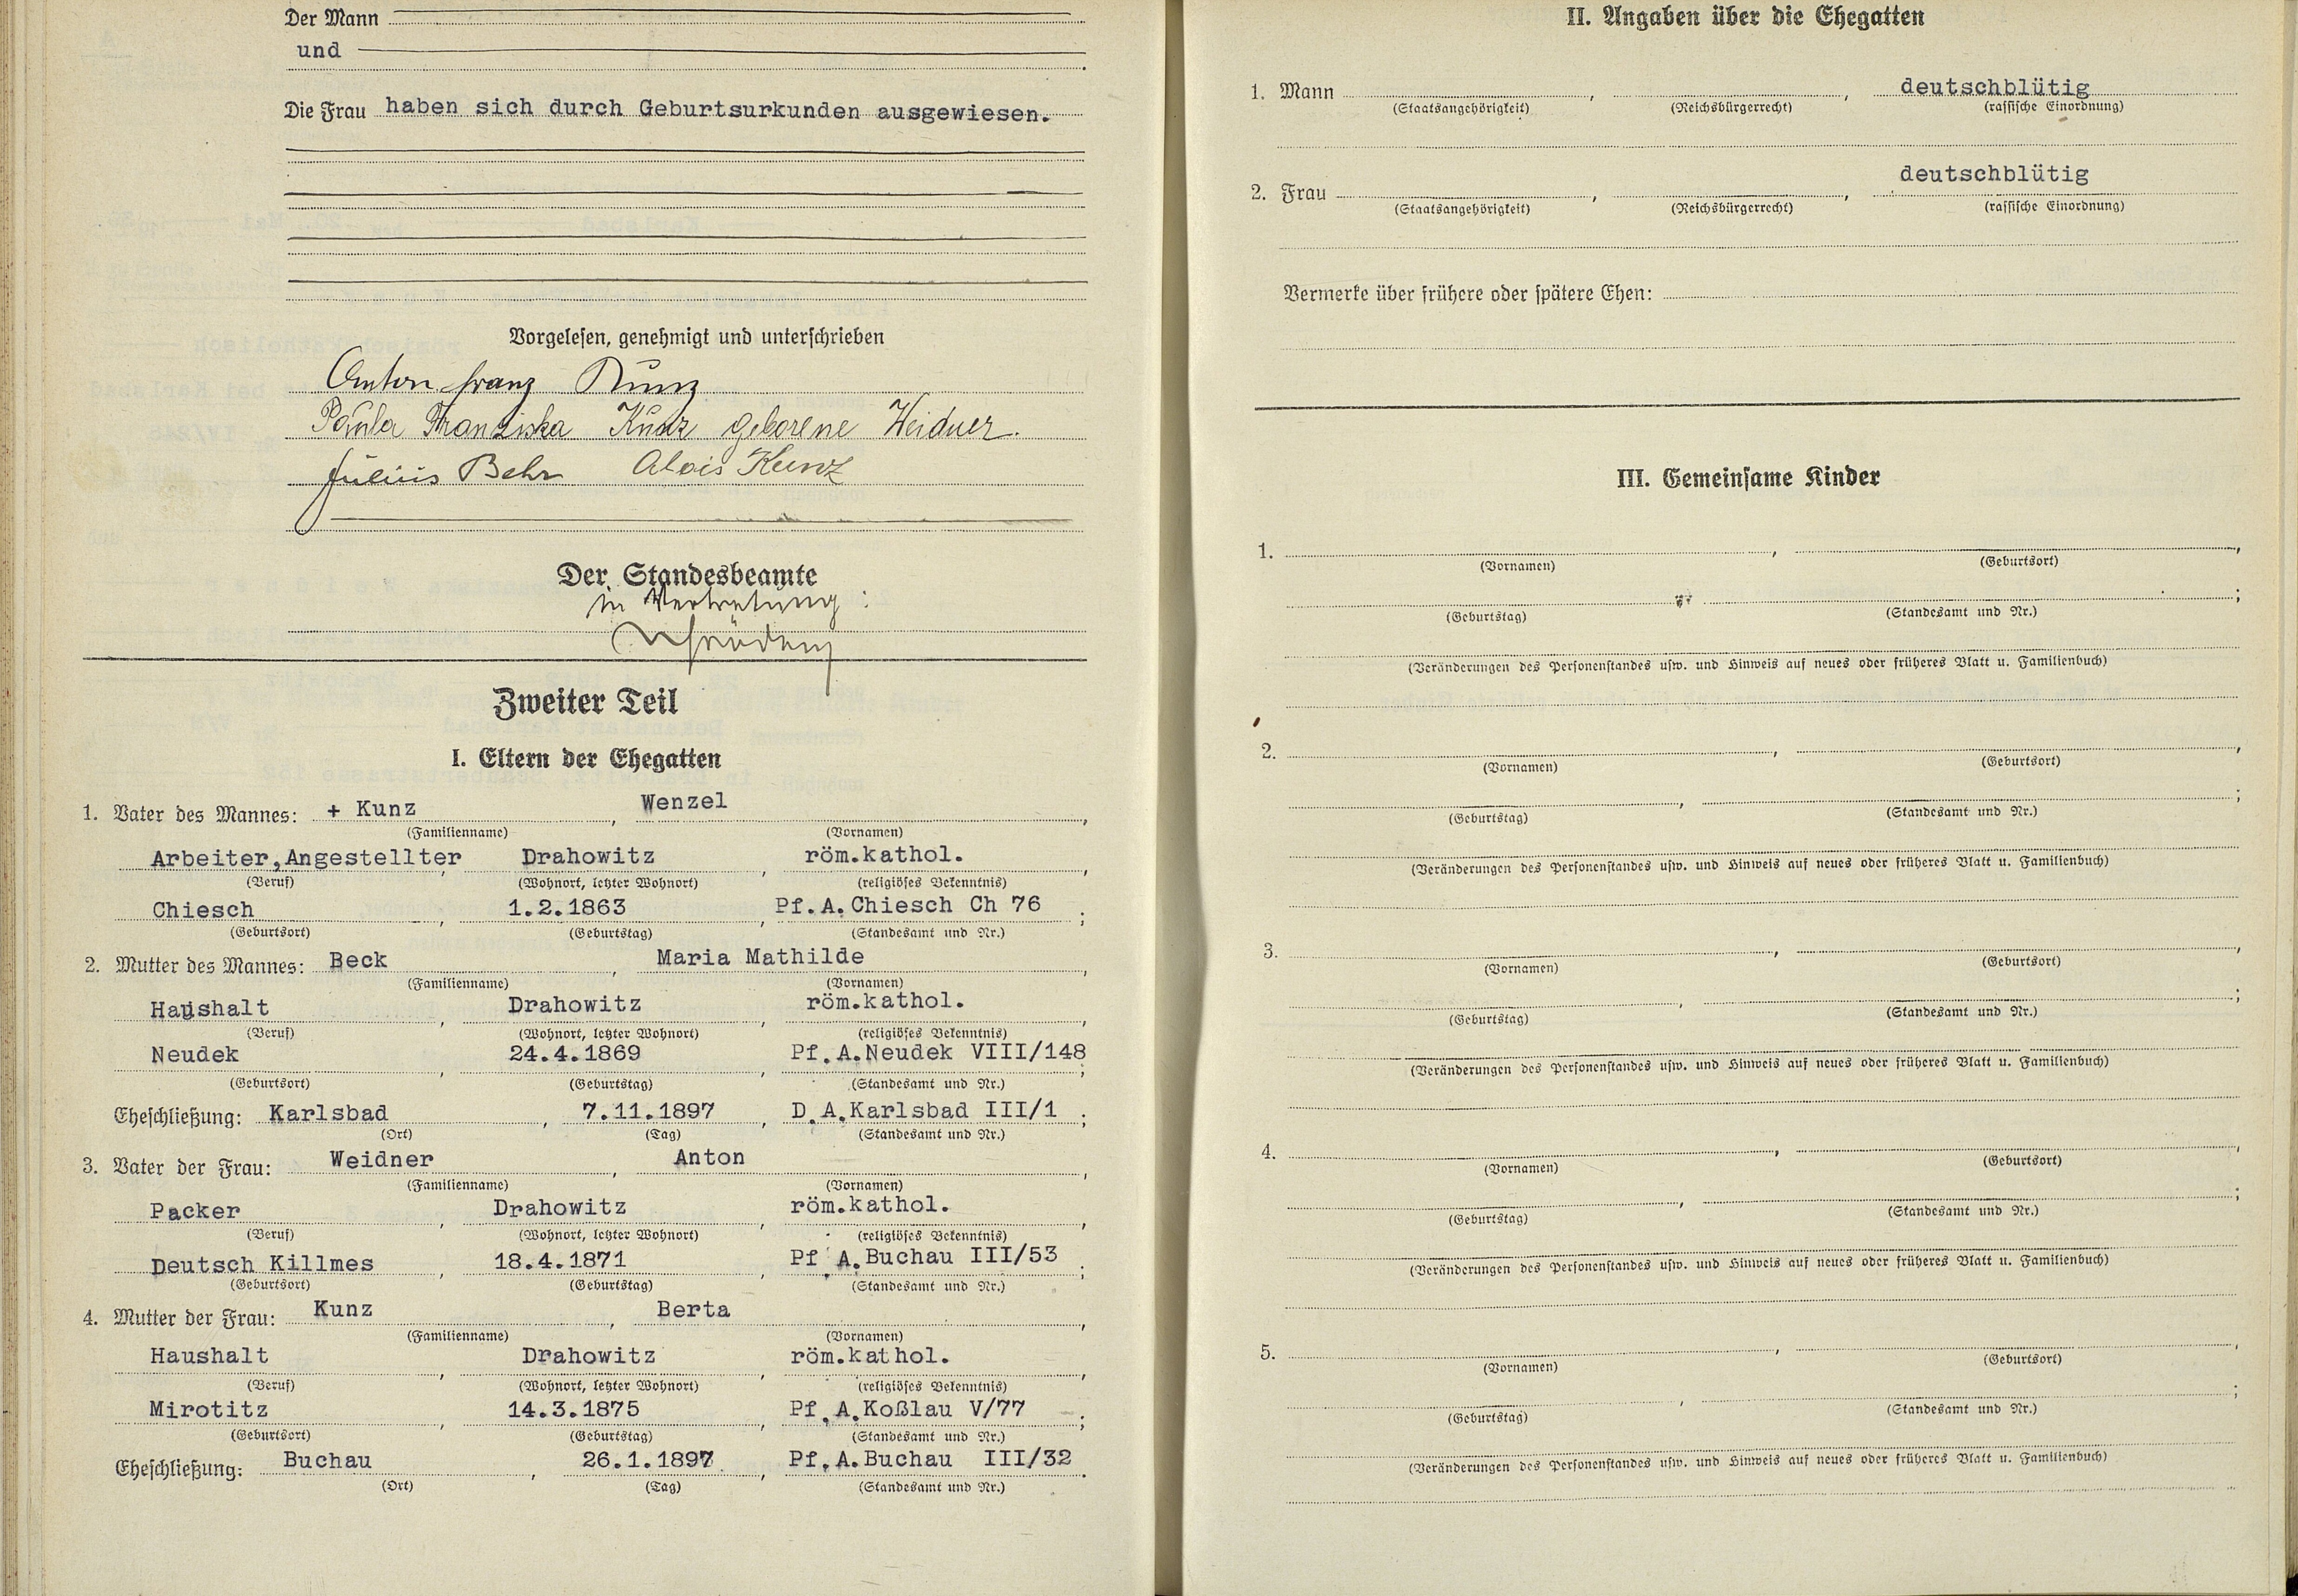 Der Mann
und
Die Frau haben sich durch Geburtsurkunden ausgewiesen.
Vorgelesen, genehmigt und unterschrieben
Anton Franz Kunz
Paula Franziska Kunz geborene Weidner.
Julius Behr Alois Kunz
Der Standesbeamte
in Vertretung:
Zweiter Teil
I. Eltern der Ehegatten
1. Vater des Mannes: + Kunz, Wenzel,
(Familienname) (Vornamen)
Arbeiter,Angestellter, Drahowitz, röm.kathol.,
(Beruf) (Wohnort, letzter Wohnort) (religiöses Bekenntnis)
Chiesch, 1.2.1863, Pf.A.Chiesch Ch 76;
(Geburtsort) (Geburtstag) (Standesamt und Nr.)
2. Mutter des Mannes: Beck, Maria Mathilde,
(Familienname) (Vornamen)
Haushalt, Drahowitz, röm.kathol.,
(Beruf) (Wohnort, letzter Wohnort) (religiöses Bekenntnis)
Neudek, 24.4.1869, Pf.A.Neudek VIII/148;
(Geburtsort) (Geburtstag) (Standesamt und Nr.)
Eheschließung: Karlsbad, 7.11.1897, D.A.Karlsbad III/1;
(Ort) (Tag) (Standesamt und Nr.)
3. Vater der Frau: Weidner, Anton,
(Familienname) (Vornamen)
Packer, Drahowitz, röm.kathol.,
(Beruf) (Wohnort, letzter Wohnort) (religiöses Bekenntnis)
Deutsch Killmes, 18.4.1871, Pf.A.Buchau III/53;
(Geburtsort) (Geburtstag) (Standesamt und Nr.)
4. Mutter der Frau: Kunz, Berta,
(Familienname) (Vornamen)
Haushalt, Drahowitz, röm.kathol.,
(Beruf) (Wohnort, letzter Wohnort) (religiöses Bekenntnis)
Mirotitz, 14.3.1875, Pf.A.Koßlau V/77;
(Geburtsort) (Geburtstag) (Standesamt und Nr.)
Eheschließung: Buchau, 26.1.1897, Pf.A.Buchau III/32.
(Ort) (Tag) (Standesamt und Nr.)
II. Angaben über die Ehegatten
1. Mann, , deutschblütig
(Staatsangehörigkeit) (Reichsbürgerrecht) (rassische Einordnung)
deutschblütig
2. Frau, ,
(Staatsangehörigkeit) (Reichsbürgerrecht) (rassische Einordnung)
Vermerke über frühere oder spätere Ehen:
III. Gemeinsame Kinder
1. , ,
(Vornamen) (Geburtsort)
, ;
(Geburtstag) (Standesamt und Nr.)
(Veränderungen des Personenstandes usw. und Hinweis auf neues oder früheres Blatt u. Familienbuch)
2. , ,
(Vornamen) (Geburtsort)
, ;
(Geburtstag) (Standesamt und Nr.)
(Veränderungen des Personenstandes usw. und Hinweis auf neues oder früheres Blatt u. Familienbuch)
3. , ,
(Vornamen) (Geburtsort)
, ;
(Geburtstag) (Standesamt und Nr.)
(Veränderungen des Personenstandes usw. und Hinweis auf neues oder früheres Blatt u. Familienbuch)
4. , ,
(Vornamen) (Geburtsort)
, ;
(Geburtstag) (Standesamt und Nr.)
(Veränderungen des Personenstandes usw. und Hinweis auf neues oder früheres Blatt u. Familienbuch)
5. , ,
(Vornamen) (Geburtsort)
, ;
(Geburtstag) (Standesamt und Nr.)
(Veränderungen des Personenstandes usw. und Hinweis auf neues oder früheres Blatt u. Familienbuch)